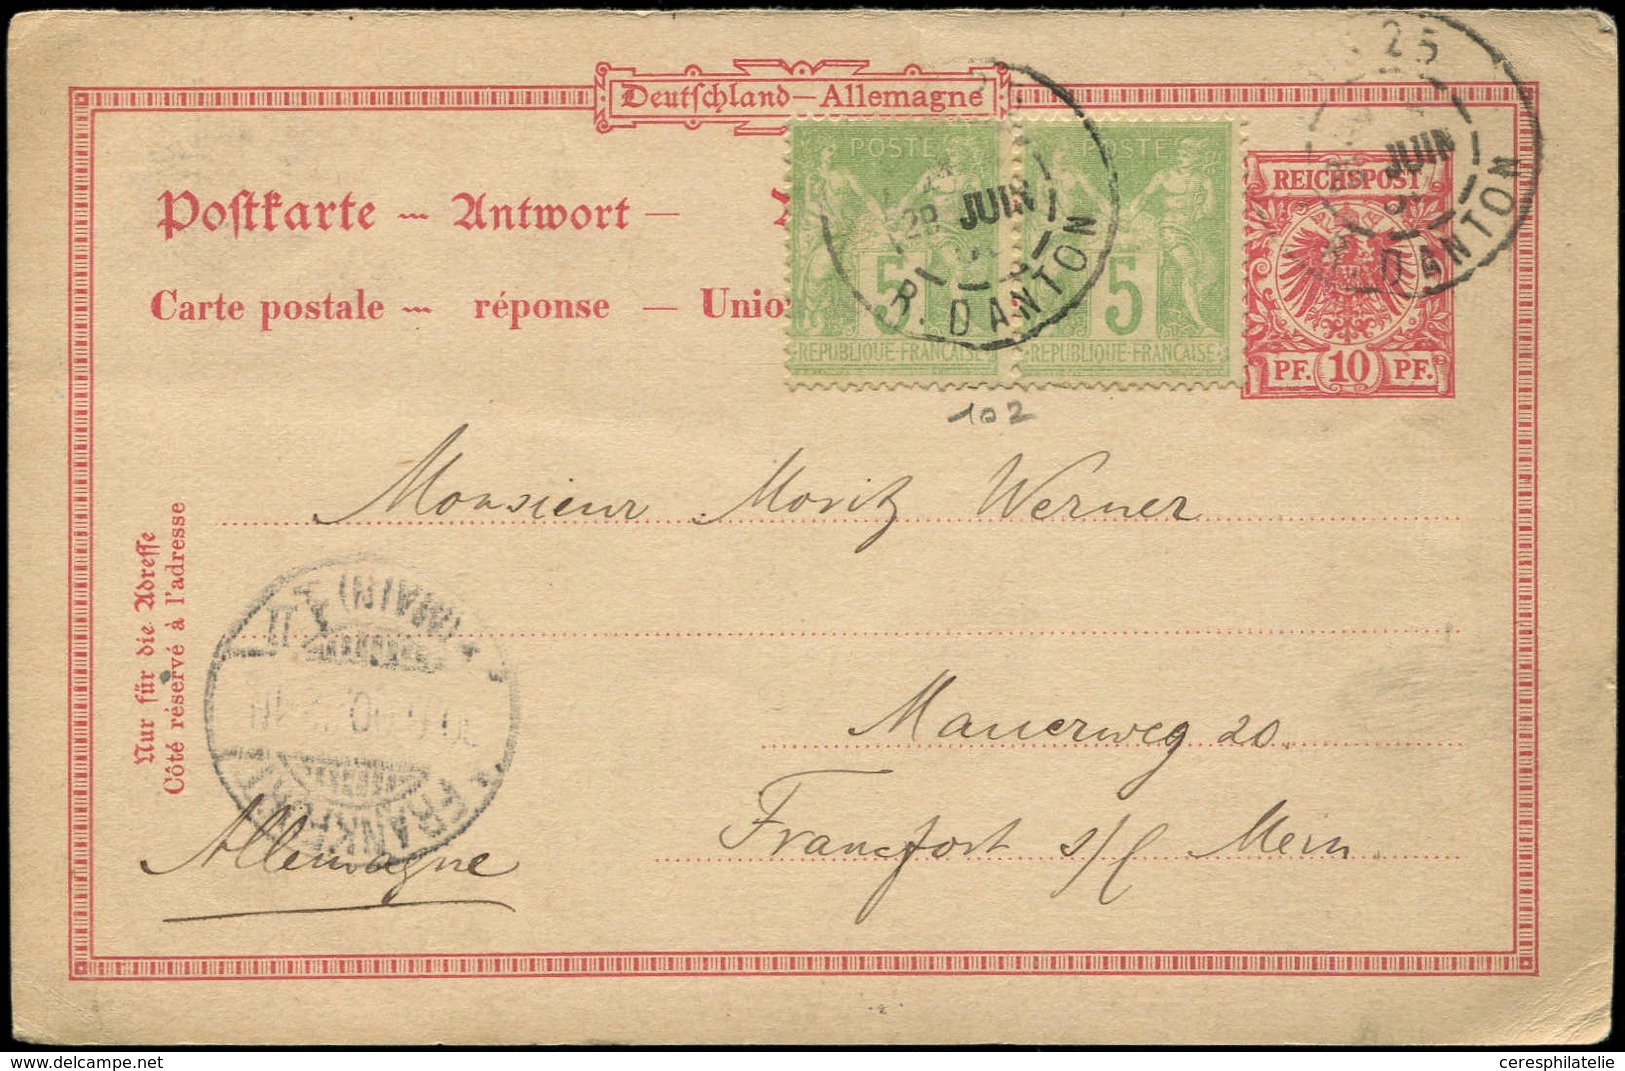 Deutschland – Allemagne
Postkarte — Antwort —
Carte postale — réponse — Union
POSTE
5
REPUBLIQUE FRANÇAISE
POSTE
5
REPUBLIQUE FRANÇAISE
29 JUIN
R. DANTON
25
JUIN
R. DANTON
REICHSPOST
PF. 10 PF.
102
Monsieur Moritz Werner
Mauerweg 20.
Francfort s/l Mein
Allemagne
Nur für die Adresse
Côté réservé à l'adresse
(MAIN)
FRANKFURT
ceresphilatelie